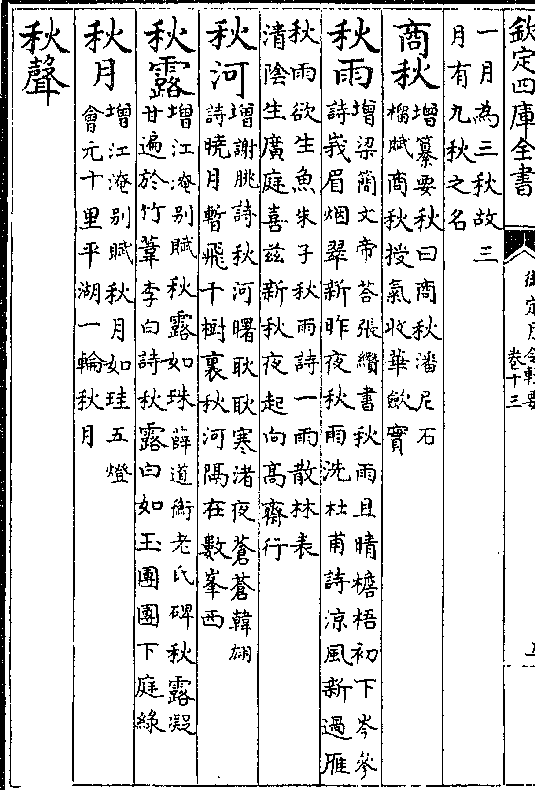 欽定四庫全書
御定月令輯要
卷十三
一月為三秋故三
月有九秋之名
商秋
增纂要秋曰商秋潘尼石
榴賦商秋授氣收華歛實
秋雨
增梁簡文帝荅張纘書秋雨且晴檐梧初下岑參
詩峩眉烟翠新昨夜秋雨洗杜甫詩涼風新過雁
秋雨欲生魚朱子秋雨詩一雨散林表
清陰生廣庭喜兹新秋夜起向髙齋行
秋河
增謝朓詩秋河曙耿耿寒渚夜蒼蒼韓翃
詩曉月暫飛千樹裏秋河隔在數峯西
秋露
增江淹别賦秋露如珠薛道衡老氏碑秋露凝
甘遍於竹葦李白詩秋露白如玉團團下庭綠
秋月
增江淹别賦秋月如珪五燈
會元十里平湖一輪秋月
秋聲